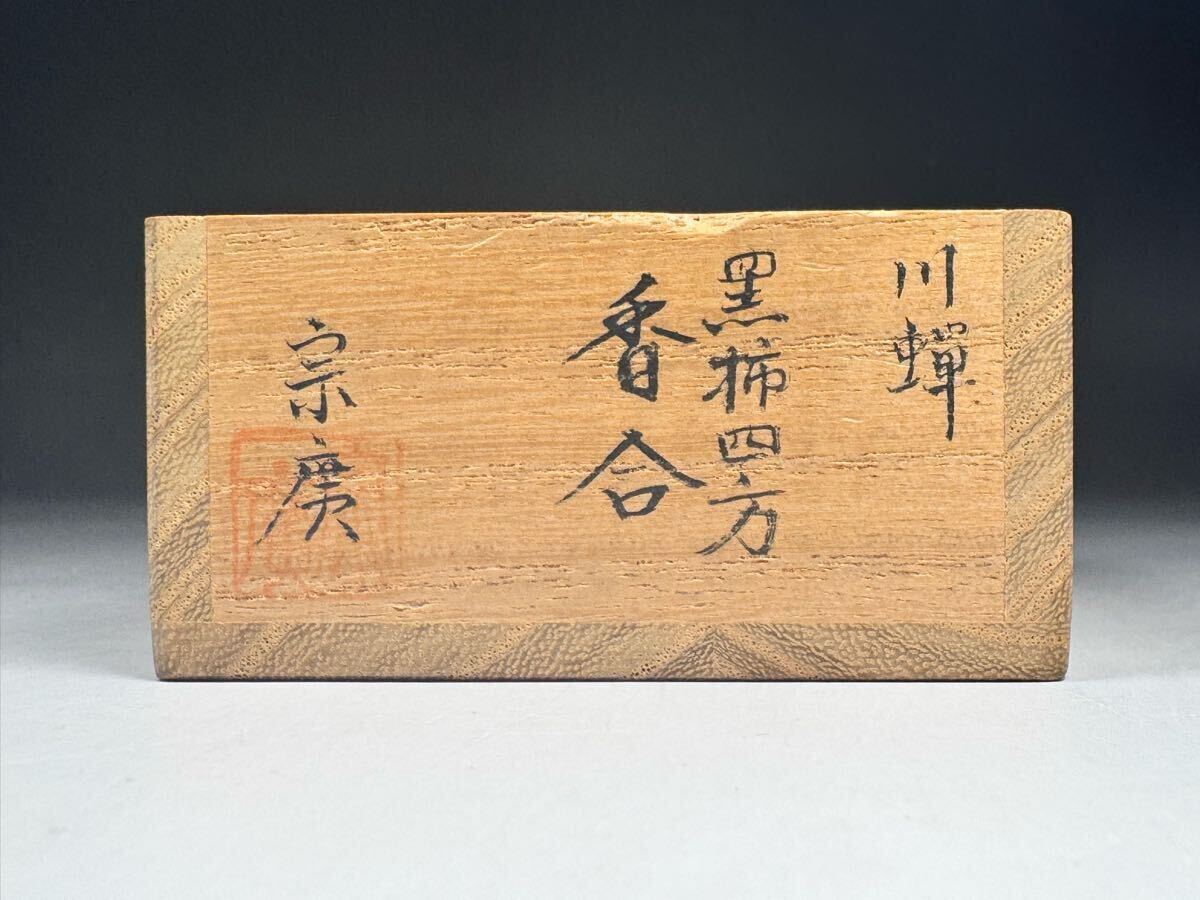 川蟬
黒柿四方
香合
宗廣